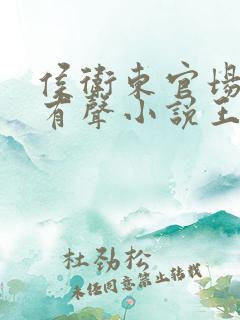 侯衛東官場
有聲小說王
杜劲松
未经同意禁止转载